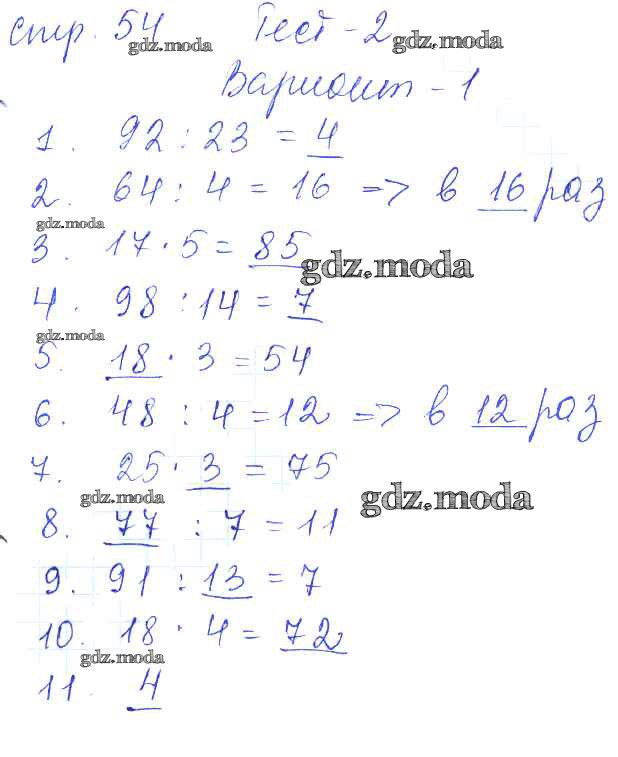 стр. 54 Тест - 2
gdz.moda gdz.moda
Вариант - 1
1. 92 : 23 = 4
2. 64 : 4 = 16 => в 16 раз
gdz.moda
3. 17 · 5 = 85
gdz.moda
4. 98 : 14 = 7
gdz.moda
5. 18 · 3 = 54
6. 48 : 4 = 12 => в 12 раз
7. 25 · 3 = 75
gdz.moda gdz.moda
8. 77 : 7 = 11
9. 91 : 13 = 7
10. 18 · 4 = 72
gdz.moda
11. 4